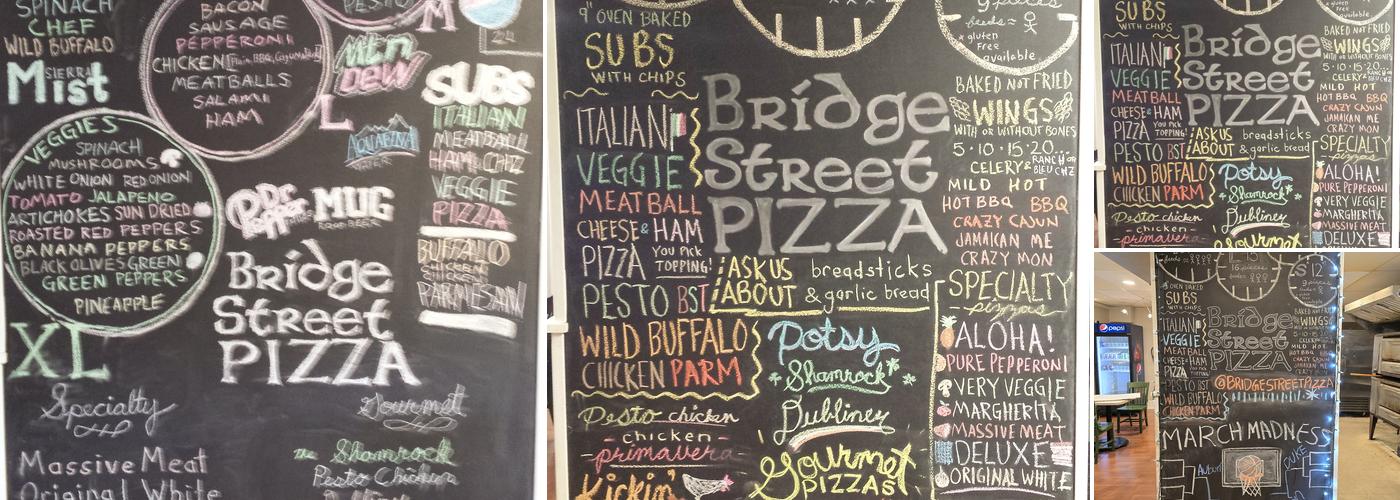 SPINACH
CHEF
WILD BUFFALO
SIERRA
Mist
VEGGIES
SPINACH
MUSHROOMS
WHITE ONION RED ONION
TOMATO JALAPENO
ARTICHOKES SUN DRIED
ROASTED RED PEPPERS
BANANA PEPPERS
BLACK OLIVES GREEN
GREEN PEPPERS
PINEAPPLE
XL
BACON
SAUSAGE
PEPPERONI
CHICKEN
MEATBALLS
SALAMI
HAM
L
PESTO
M
Mtn
DEW
AQUAFINA
WATER
SUBS
ITALIAN
MEATBALL
HAM & CHZ
VEGGIE
PIZZA
BUFFALO
CHICKEN
CHICKEN
PARMESAN
Dr
Pepper
MUG
ROOT BEER
Bridge
Street
PIZZA
Specialty
Gourmet
Massive Meat
Original White
the Shamrock
Pesto Chicken
9" OVEN BAKED
SUBS
WITH CHIPS
ITALIAN
VEGGIE
MEATBALL
CHEESE & HAM
PIZZA YOU PICK
TOPPING!
PESTO BST
WILD BUFFALO
CHICKEN PARM
Pesto chicken
- chicken -
- primavera
Kickin'
Bridge
Street
PIZZA
ASK US
ABOUT
breadsticks
& garlic bread
Potsy
Shamrock
Dubliner
Gourmet
PIZZAS
9 pieces
feeds =
* gluten
Free
available
BAKED NOT FRIED
WINGS
WITH OR WITHOUT BONES
5·10·15·20...
CELERY & RANCH OR
BLEU CHZ
MILD HOT
HOT BBQ BBQ
CRAZY CAJUN
JAMAICAN ME
CRAZY MON
SPECIALTY
pizzas
ALOHA!
PURE PEPPERONI
VERY VEGGIE
MARGHERITA
MASSIVE MEAT
DELUXE
ORIGINAL WHITE
SUBS
WITH CHIPS
ITALIAN
VEGGIE
MEATBALL
CHEESE & HAM
PIZZA YOU PICK
TOPPING!
PESTO BST
WILD BUFFALO
CHICKEN PARM
Pesto chicken
- chicken -
primavera
Bridge
Street
PIZZA
ASK US
ABOUT
breadsticks
& garlic bread
Potsy
Shamrock
Dubliner
Gourmet
* gluten
Free
available
BAKED NOT FRIED
WINGS
5·10·15·20...
CELERY &
MILD HOT
HOT BBQ BBQ
CRAZY CAJUN
JAMAICAN ME
CRAZY MON
SPECIALTY
pizzas
ALOHA!
PURE PEPPERONI
VERY VEGGIE
MARGHERITA
MASSIVE MEAT
DELUXE
pepsi
9" OVEN BAKED
SUBS
WITH CHIPS
ITALIAN
VEGGIE
MEATBALL
CHEESE & HAM
PIZZA
PESTO BST
WILD BUFFALO
CHICKEN PARM
Bridge
Street
PIZZA
@BRIDGESTREETPIZZA
BAKED NOT FRIED
WINGS
MILD HOT
HOT BBQ BBQ
CRAZY CAJUN
JAMAICAN ME
CRAZY MON
MARCH MADNESS
Auburn
DUKE